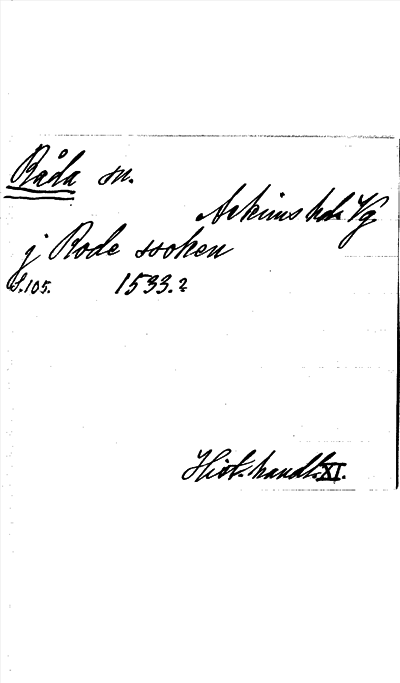 Råda sn.
Askims hd. Vg
j Rode ssoken
S.105. 1533.2
Hist. handl. XI.